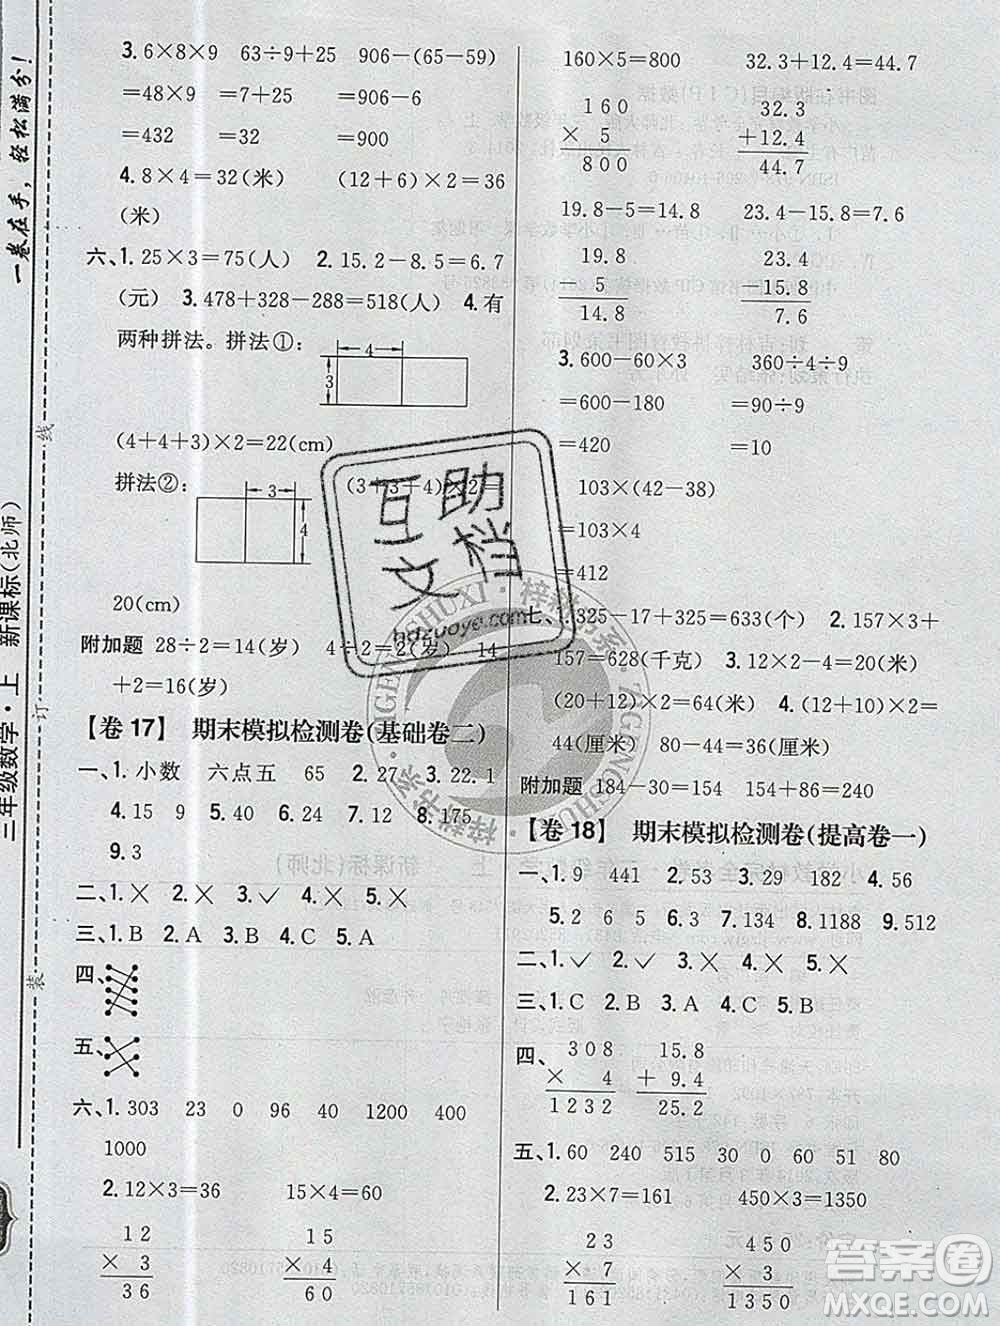 一卷在手，轻松满分！
三年级数学·上 新课标(北师)
线
订
装
3.6×8×9 63÷9+25 906−(65−59)
=48×9 =7+25 =906−6
=432 =32 =900
4.8×4=32(米) (12+6)×2=36
(米)
六、1.25×3=75(人) 2.15.2−8.5=6.7
(元) 3.478+328−288=518(人) 4.有
两种拼法。拼法①：
4
3
(4+4+3)×2=22(cm)
拼法②： (3+3+4)×2=
3
4
20(cm)
附加题 28÷2=14(岁) 4÷2=2(岁) 14
+2=16(岁)
【卷17】 期末模拟检测卷(基础卷二)
一、1.小数 六点五 65 2.27 3.22.1
4.15 9 5.20 6.4 7.12 8.175
9.3
二、1.× 2.× 3.✓ 4.× 5.×
三、1.B 2.A 3.B 4.C 5.A
四、
五、
六、1.303 23 0 96 40 1200 400
1000
2.12×3=36 15×4=60
12 15
× 3 × 4
36 60
160×5=800 32.3+12.4=44.7
160 32.3
× 5 +12.4
800 44.7
19.8−5=14.8 23.4−15.8=7.6
19.8 23.4
− 5 −15.8
14.8 7.6
3.600−60×3 360÷4÷9
=600−180 =90÷9
=420 =10
103×(42−38)
=103×4
=412
七、1.325−17+325=633(个) 2.157×3+
157=628(千克) 3.12×2−4=20(米)
(20+12)×2=64(米) 4.(12+10)×2=
44(厘米) 80−44=36(厘米)
附加题 184−30=154 154+86=240
【卷18】 期末模拟检测卷(提高卷一)
一、1.9 441 2.53 3.29 182 4.56
5.2 6 5 6.3 7.134 8.1188 9.512
二、1.✓ 2.✓ 3.× 4.× 5.×
三、1.C 2.B 3.A 4.C 5.B
四、 308 15.8
× 4 + 9.4
1232 25.2
五、1.60 240 515 30 0 60 51 80
2.23×7=161 450×3=1350
23 450
× 7 × 3
161 1350
互助文档
hdzuoye.com
梓耕书系·ZIGENGSHUXI
答案圈
MXQE.COM